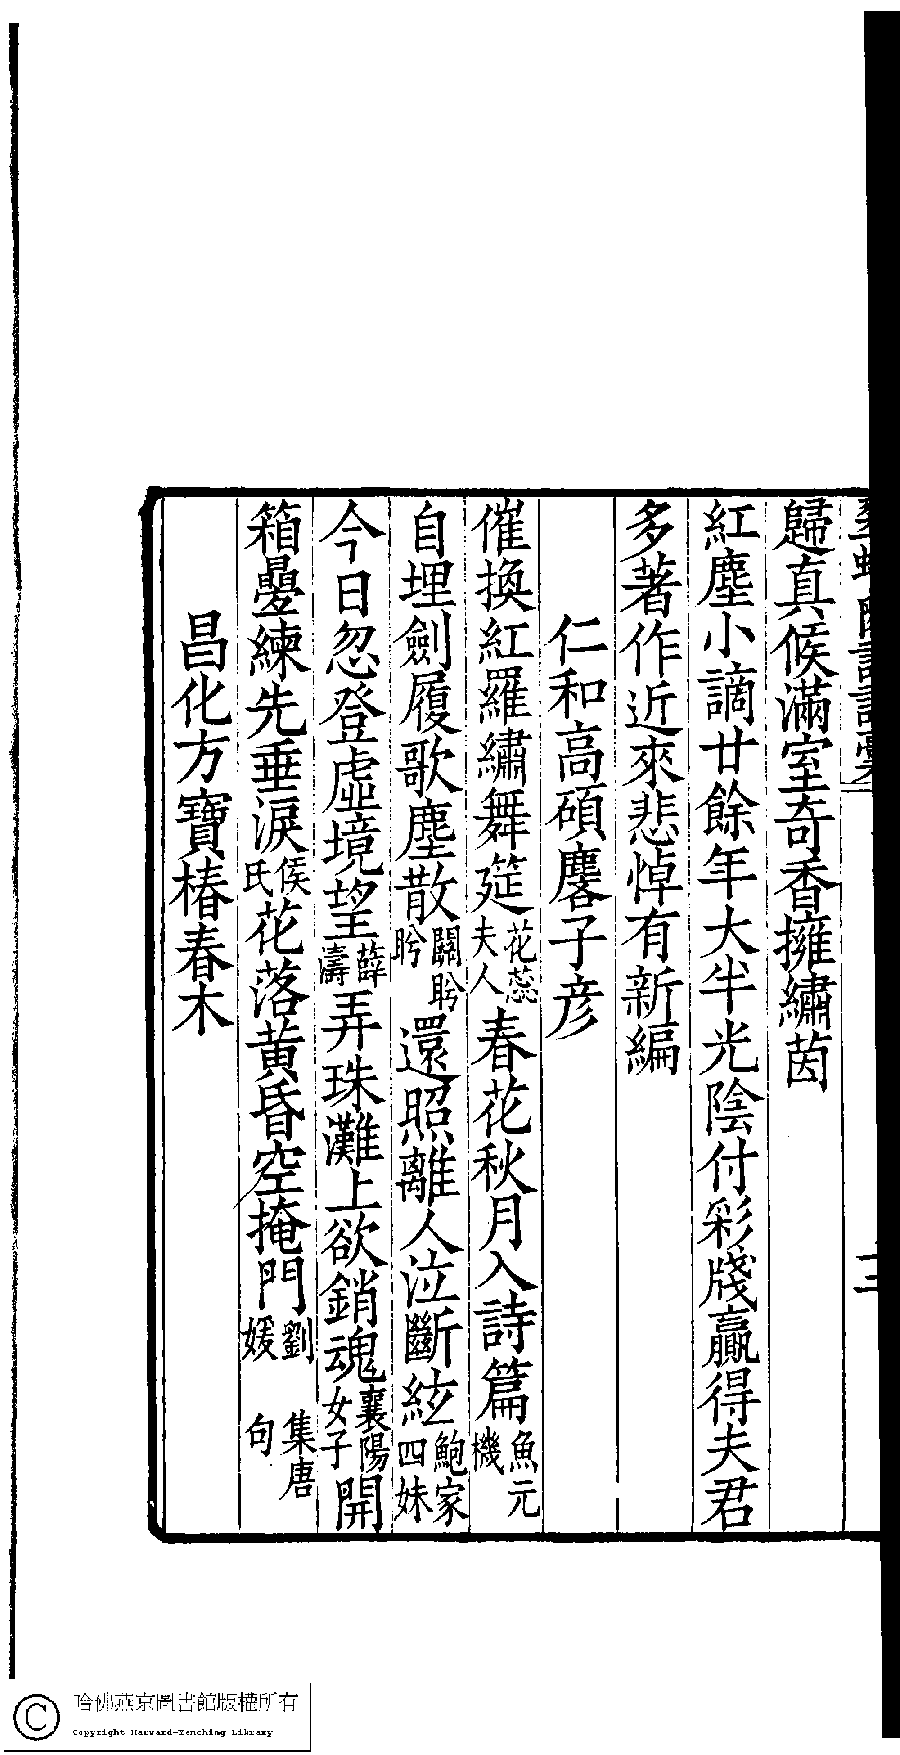 翠螺閣詩詞稾 三
歸真候滿室奇香擁繡茵
紅塵小謫廿餘年大半光陰付彩牋贏得夫君
多著作近來悲悼有新編
仁和高碩麐子彥
催換紅羅繡舞筵花蕊夫人春花秋月入詩篇魚元機
自埋劍履歌塵散關盼盼還照離人泣斷絃鮑家四妹
今日忽登虛境望薛濤弄珠灘上欲銷魂襄陽女子開
箱疊練先垂淚侯氏花落黃昏空掩門劉媛 集唐句
昌化方寶椿春木
哈佛燕京圖書館版權所有
Copyright Harvard-Yenching Library